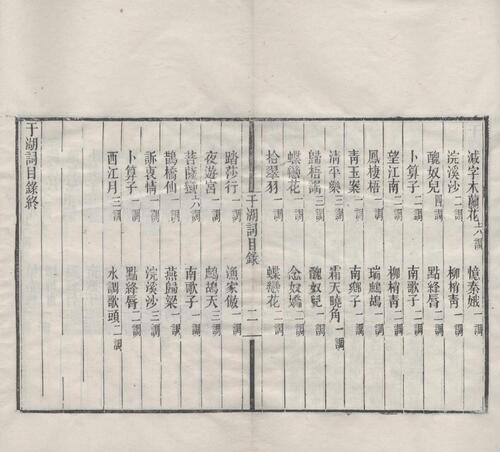 減字木蘭花六調　憶秦娥一調
浣溪沙二調　柳梢青一調
醜奴兒四調　點絳唇二調
卜算子一調　南歌子二調
望江南二調　柳梢青一調
鳳棲梧一調　瑞鷓鴣一調
青玉案一調　南鄉子一調
清平樂三調　霜天曉角一調
歸梧謠三調　醜奴兒一調
蝶戀花一調　念奴嬌二調
拾翠羽一調　蝶戀花一調
于湖詞目錄　二
踏莎行一調　漁家傲一調
夜遊宮一調　鷓鴣天三調
菩薩蠻六調　南歌子一調
鵲橋仙一調　燕歸梁一調
訴衷情一調　浣溪沙三調
卜算子二調　點絳唇二調
西江月三調　水調歌頭二調
于湖詞目錄終